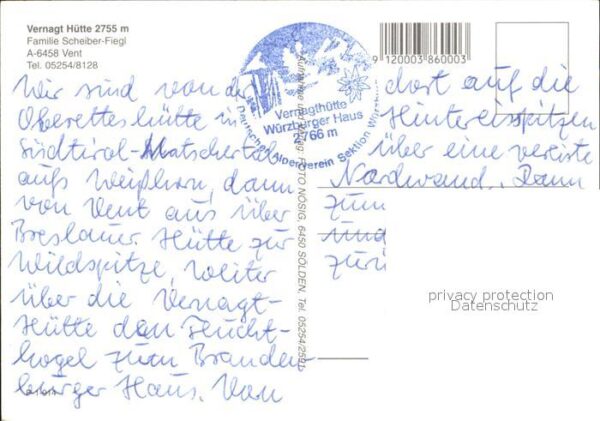 Vernagt Hütte 2755 m
Familie Scheiber-Fiegl
A-6458 Vent
Tel. 05254/8128
Wir sind von der
Oberetteshütte in
Südtirol-Matschertal
aufs Weißkugl, dann
von Vent aus über
Breslauer Hütte zur
Wildspitze, weiter
über die Vernagt-
Hütte den Flucht-
kogel zum Branden-
burger Haus. Von
Vernagthütte
Würzburger Haus
2766 m
Deutscher Alpenverein Sektion
FOTO NÖSIG, 6450 SÖLDEN, Tel. 05254/2591
9 120003 860003
dort auf die
Hintereisspitzen
über eine vereiste
Nordwand. Dann
zum
und
zurü
privacy protection
Datenschutz